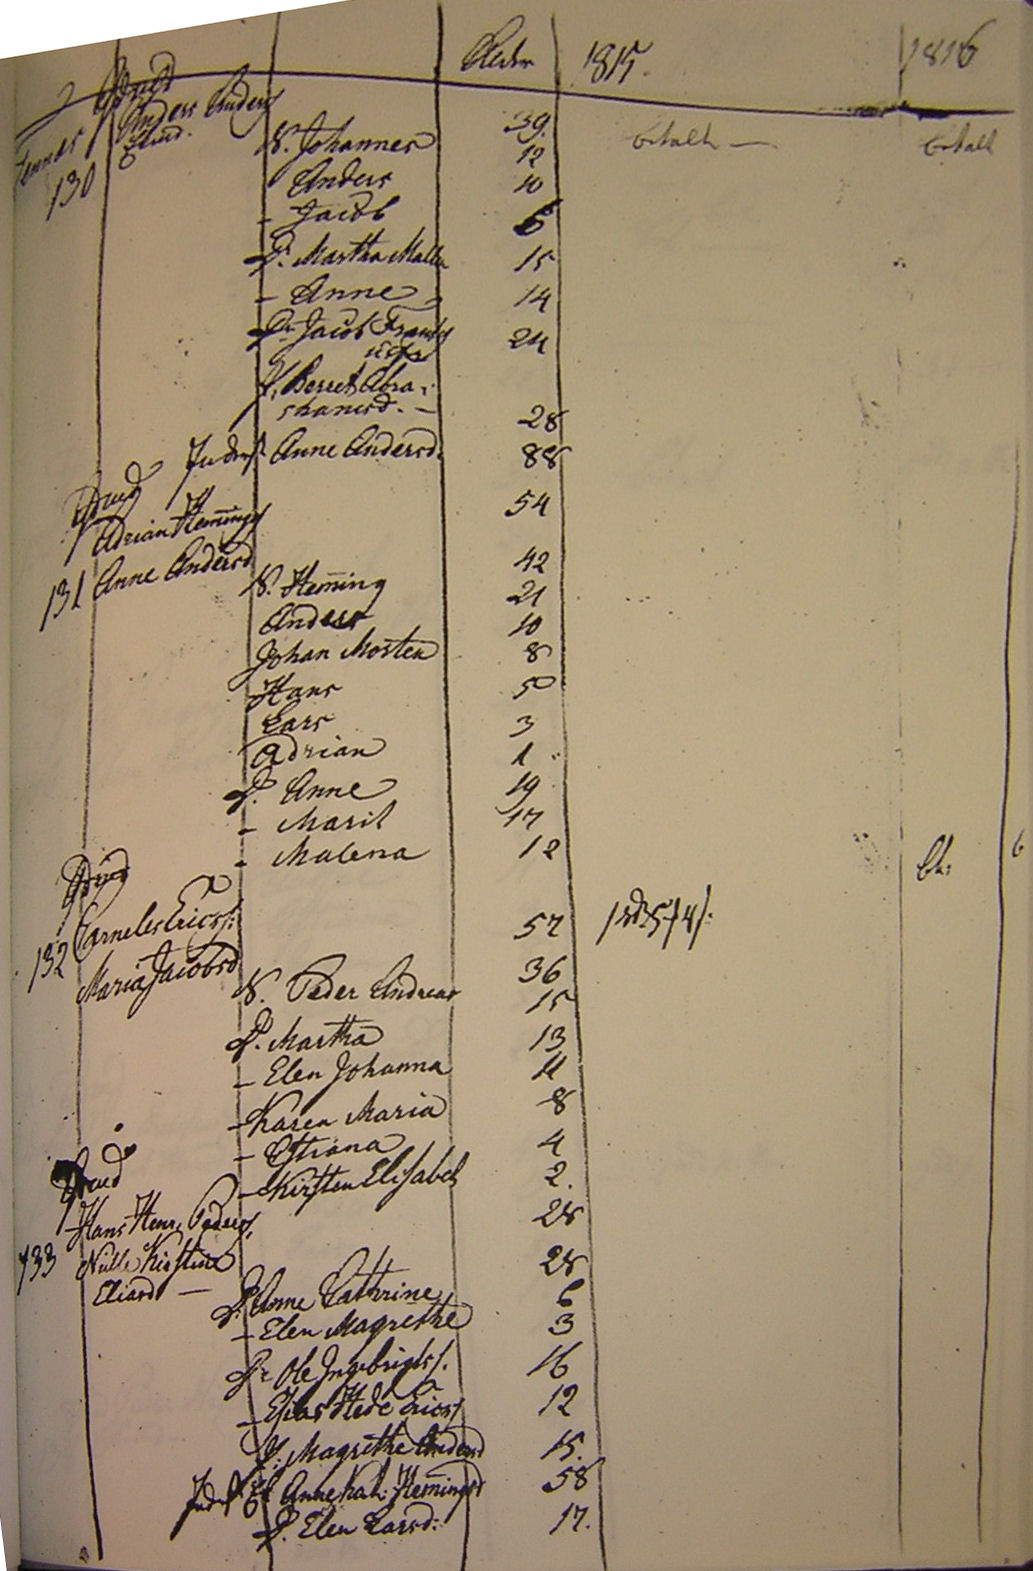 Alder 1815. 1816
Gaard
Anders Anders 39. betalt — betalt
130 Ekm.
S. Johannes 12
Anders 10
- Jacob 6
D. Martha Malla 15
- Anne 14
Dr. Jacob Frants 24
P. Berret Abra-
hamsd. — 28
Inders. Anne Andersd. 88
Adrian Hemings 54
131 Anne Andersd 42
S. Heming 21
Anders 10
Johan Morten 8
Hans 5
Lars 3
Adrian 1
D. Anne 19
- Marit 17
- Malena 12
bt: 6
Carneles Ericss: 57
132 Maria Jacobsd 36
S. Peder Andreas 15
D. Martha 13
- Elen Johanna 11
- Karen Maria 8
- Cstiana 4
- Kirsten Elisabet 2.
Hans Henr. Peders. 28
133 Nille Kirstine 28
Eliasd —
D. Anne Cathrine 6
- Elen Magrethe 3
Dr. Ole Ingebrigts. 16
- Elias Hede Ericss 12
P. Magrethe Andersd 15.
Inders. Anne Kat: Hemingsd 58
D. Elen Larsd: 17.